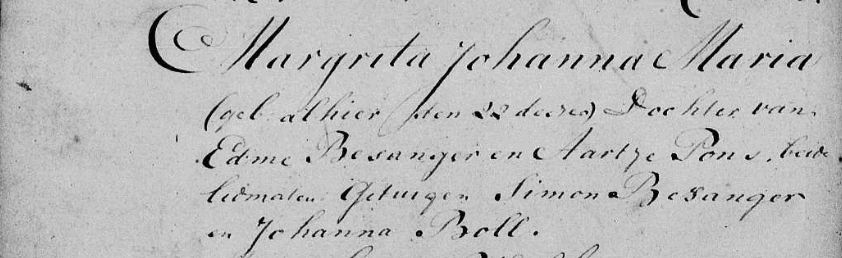 Margrita Johanna Maria
(geb. alhier den 22 dezes) Dochter van
Edme Besanger en Aartje Pons, beide
ledematen. Getuigen Simon Besanger
en Johanna Boll.